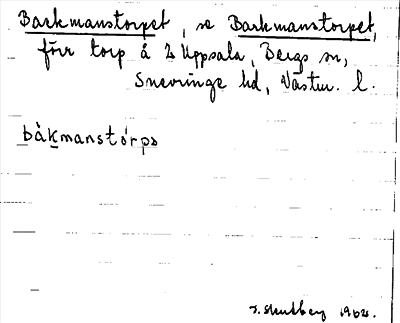 Barkmanstorpet, se Barkmanstorpet,
förr torp å L Uppsala, Bergs sn,
Snevringe hd, Västm. l.
bàkmanstórps
1962.